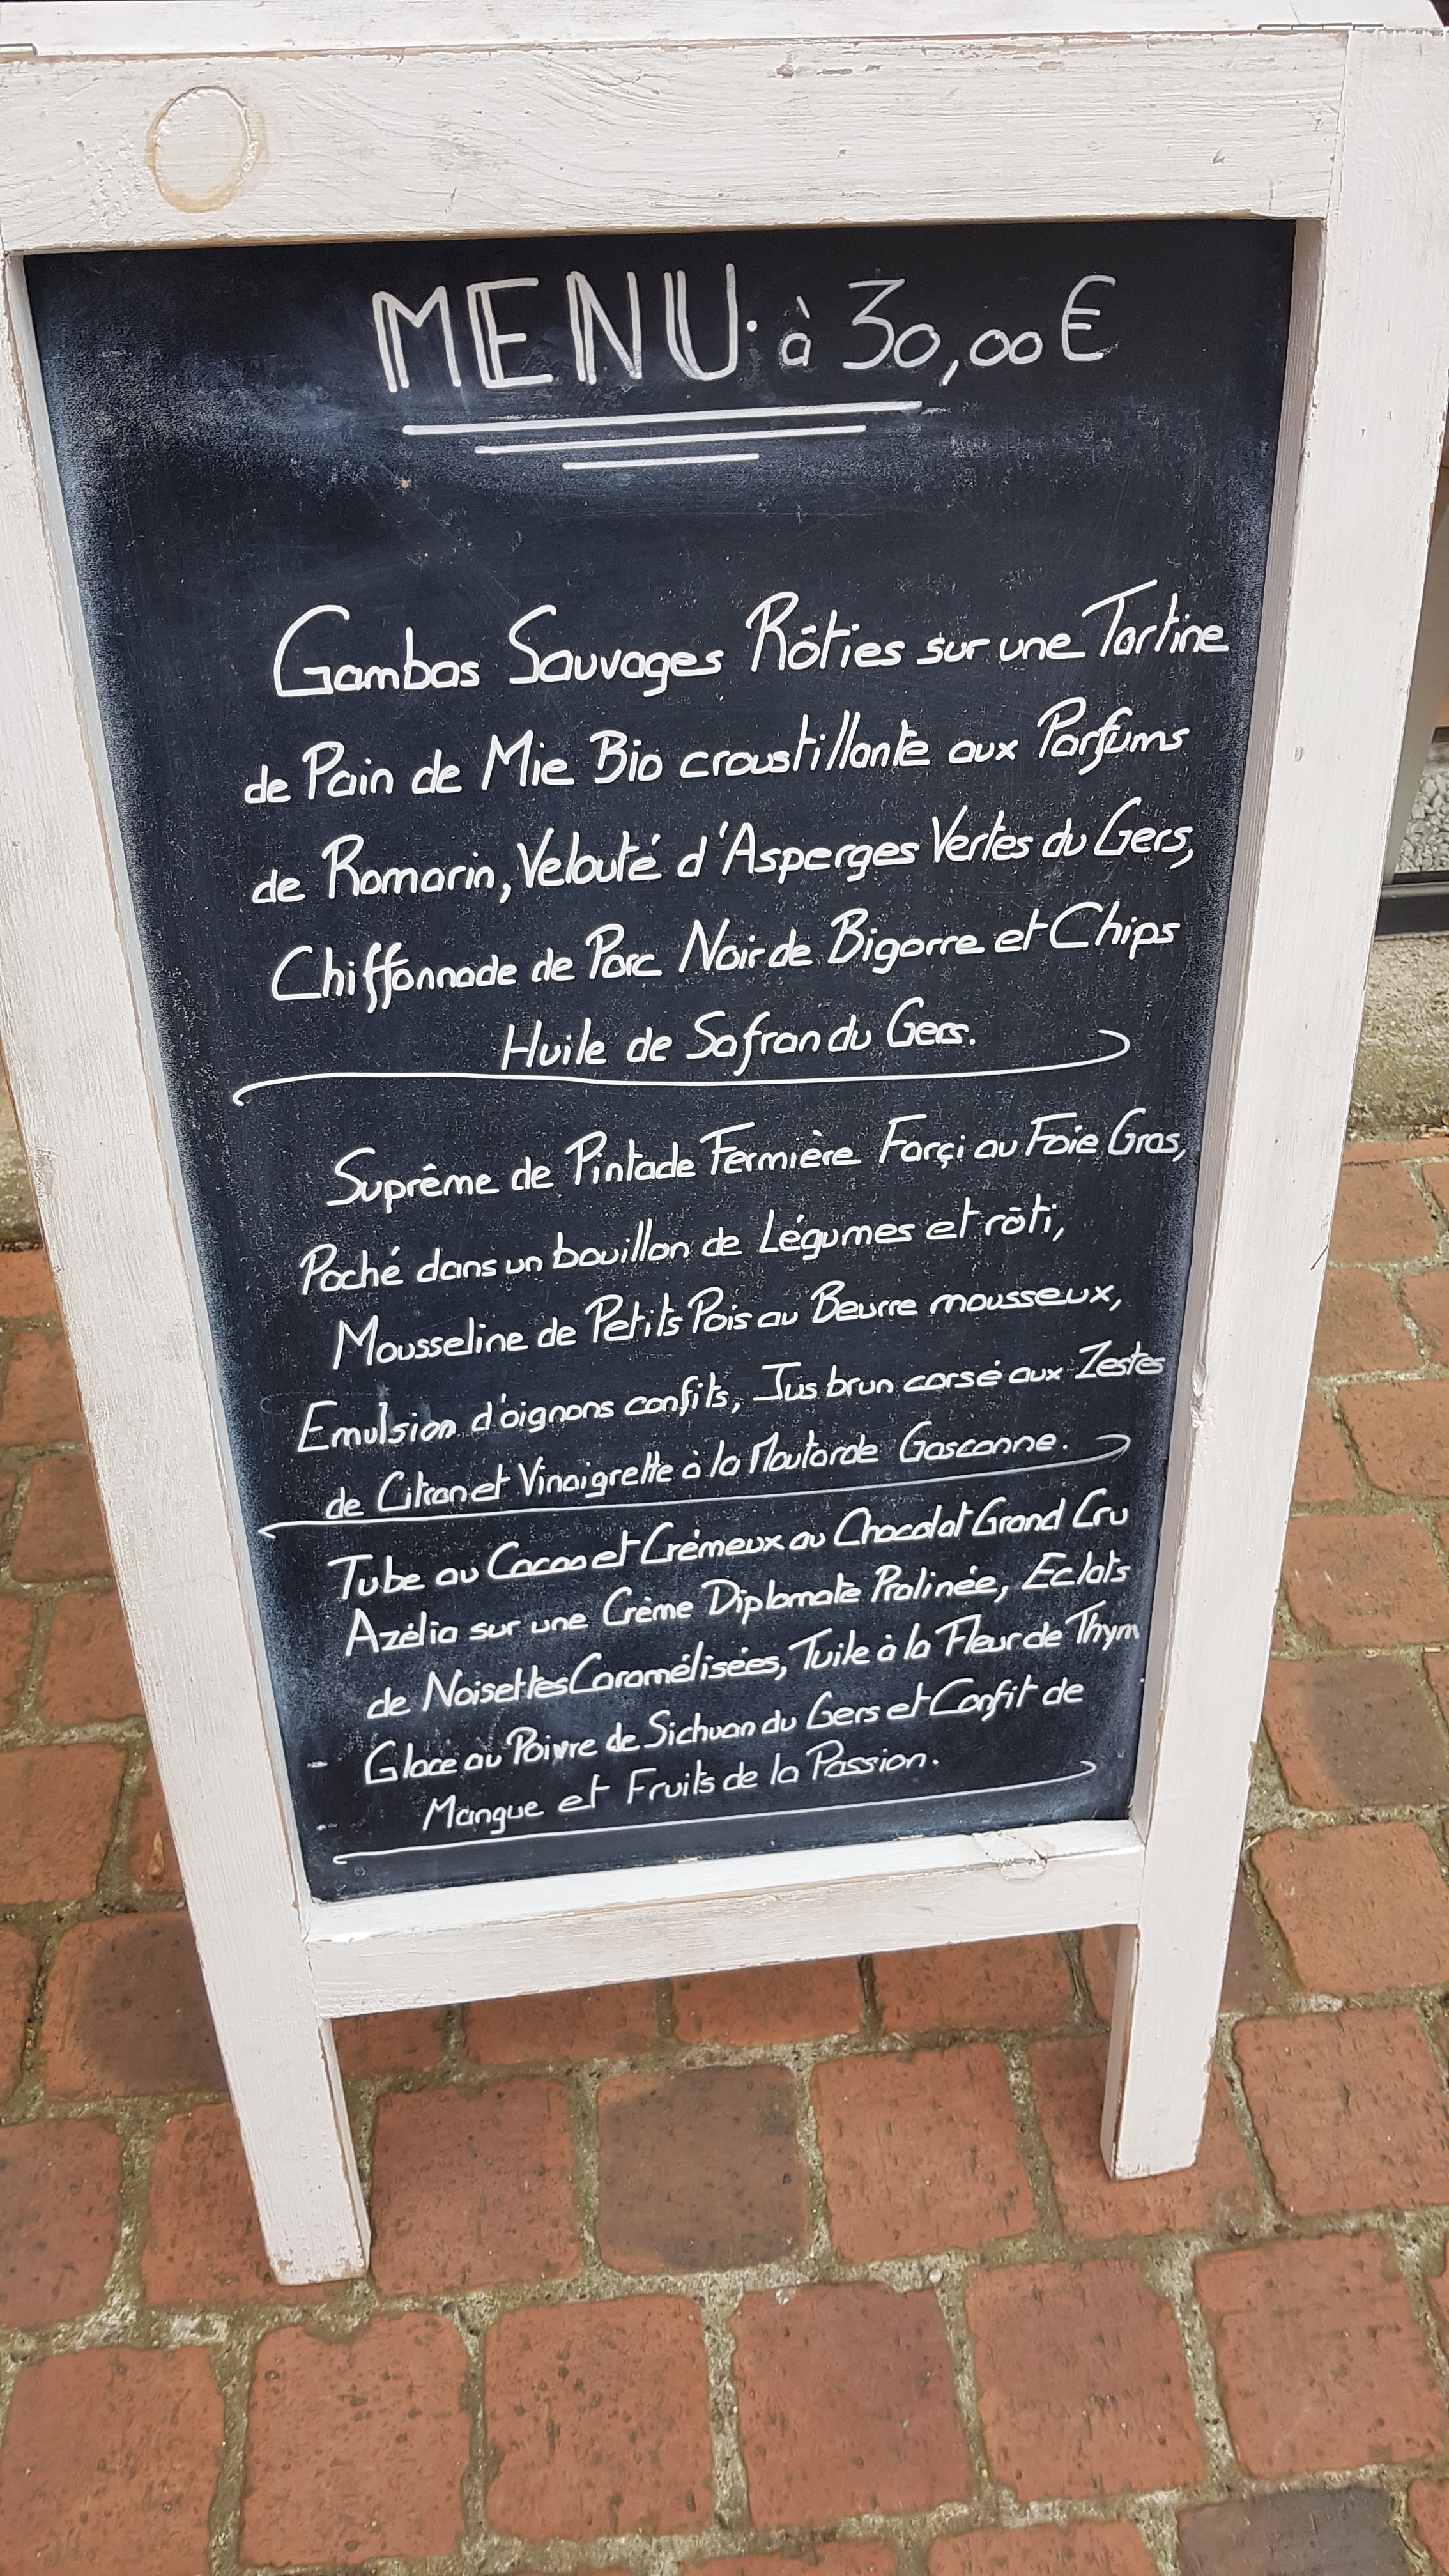 MENU à 30,00€
Gambas Sauvages Rôties sur une Tartine
de Pain de Mie Bio croustillante aux Parfums
de Romarin, Velouté d'Asperges Vertes du Gers,
Chiffonnade de Porc Noir de Bigorre et Chips
Huile de Safran du Gers.
Suprême de Pintade Fermière Farçi au Foie Gras,
Poché dans un bouillon de Légumes et rôti,
Mousseline de Petits Pois au Beurre mousseux,
Emulsion d'oignons confits, Jus brun corsé aux Zestes
de Citron et Vinaigrette à la Moutarde Gasconne.
Tube au Cacao et Crémeux au Chocolat Grand Cru
Azélia sur une Crème Diplomate Pralinée, Eclats
de Noisettes Caramélisées, Tuile à la Fleur de Thym
Glace au Poivre de Sichuan du Gers et Confit de
Mangue et Fruits de la Passion.